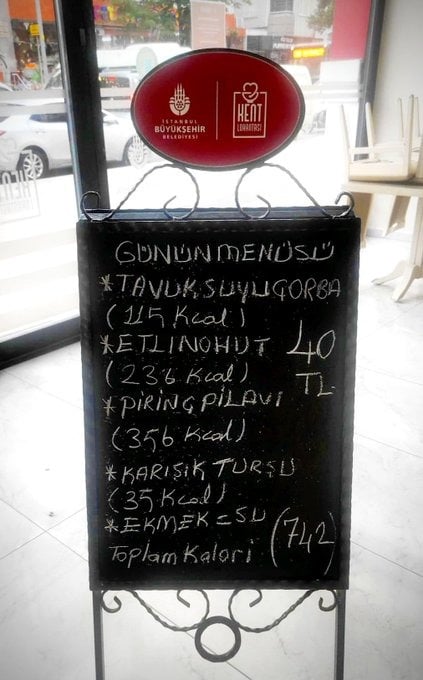 İSTANBUL
BÜYÜKŞEHİR
BELEDİYESİ
KENT
LOKANTASI
GÜNÜN MENÜSÜ
*TAVUK SUYU ÇORBA
(115 Kcal)
*ETLİ NOHUT 40
(236 Kcal) TL
*PİRİNÇ PİLAVI
(356 Kcal)
*KARIŞIK TURŞU
(35 Kcal)
*EKMEK = SU (742)
Toplam Kalori